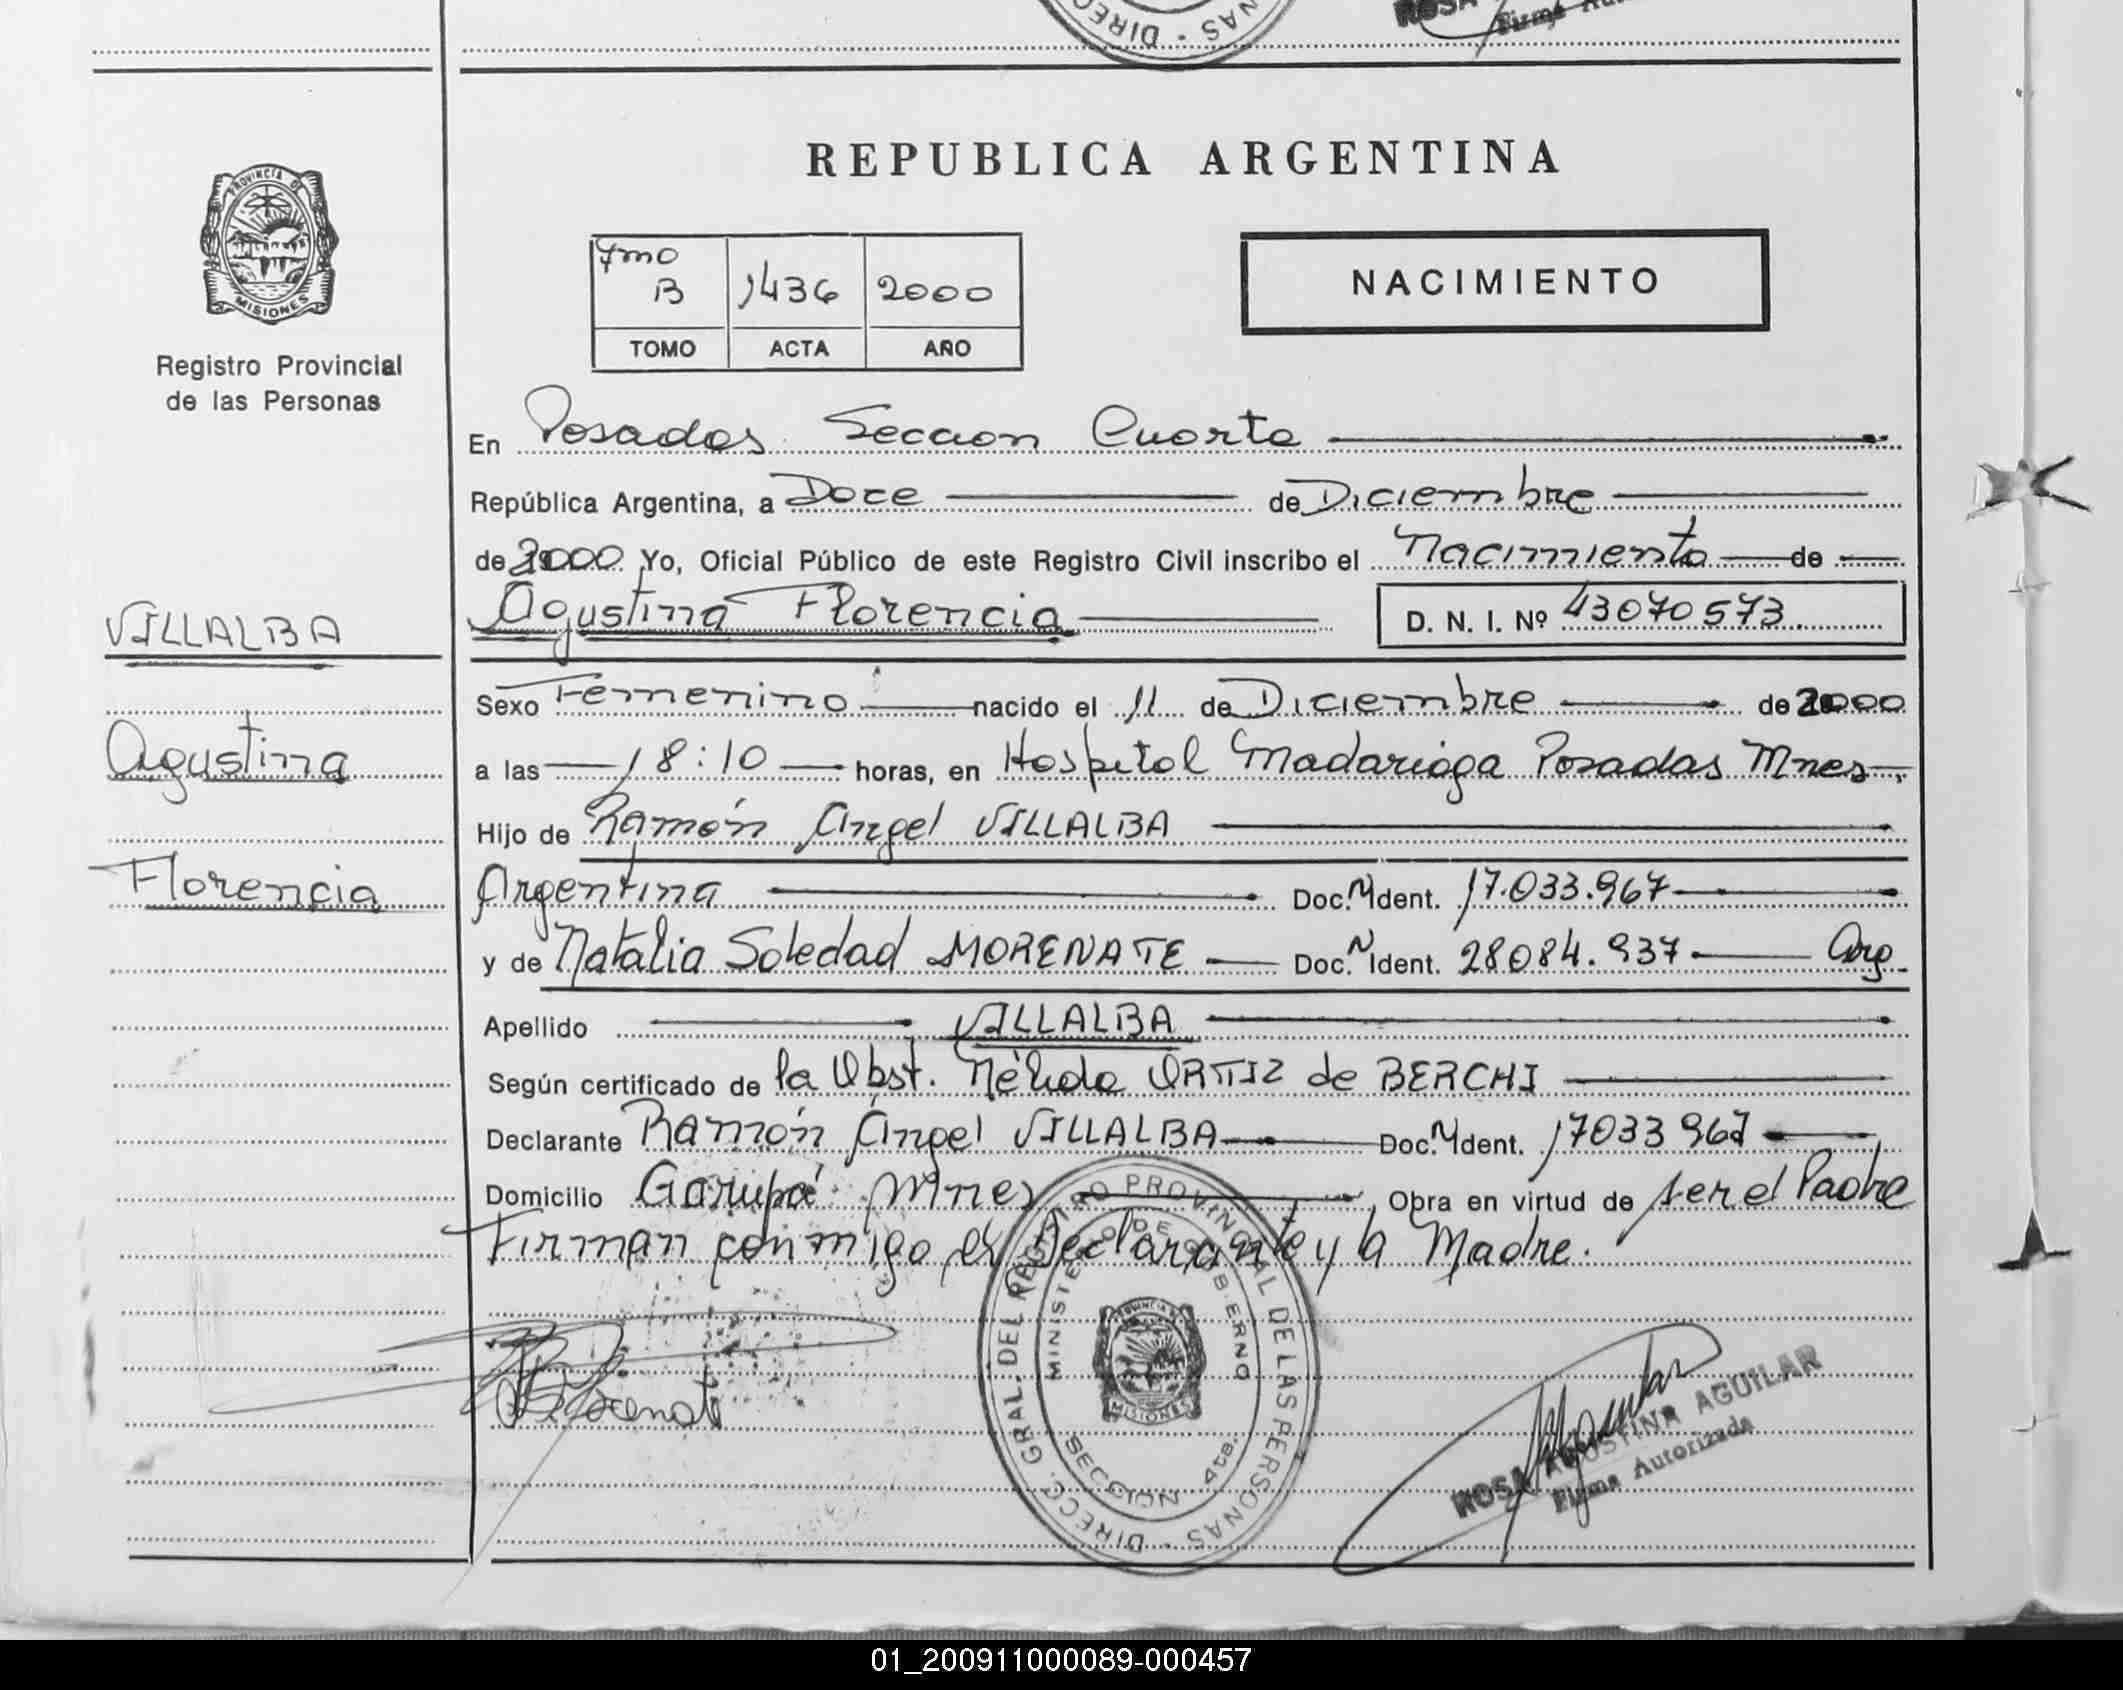 DIRECC NAS
ROSA
Firma
PROVINCIA DE
MISIONES
Registro Provincial
de las Personas
REPUBLICA ARGENTINA
7mo B 1436 2000
TOMO ACTA AÑO
NACIMIENTO
En Posadas Seccion Cuarta
República Argentina, a Doce de Diciembre
de 2000 Yo, Oficial Público de este Registro Civil inscribo el Nacimiento de
VILLALBA
Agustina Florencia D. N. I. Nº 43070573
Sexo Femenino nacido el 11 de Diciembre de 2000
Agustina
a las 18:10 horas, en Hospital Madariaga Posadas Mnes
Hijo de Ramón Angel VILLALBA
Florencia
Argentina Doc. N Ident. 17.033.967
y de Natalia Soledad MORENATE Doc. N Ident. 28084.937 Arg.
Apellido VILLALBA
Según certificado de la Obst. Nélida ORTIZ de BERCHI
Declarante Ramón Ángel VILLALBA Doc. N Ident. 17033967
Domicilio Garupá Mnes, Obra en virtud de ser el Padre
Firman conmigo el Declarante y la Madre.
DIRECC. GRAL. DEL REGISTRO PROVINCIAL DE LAS PERSONAS
MINISTERIO DE GOBIERNO
PROVINCIA DE
MISIONES
SECCION 4ta.
ROSA AGUSTINA AGUILAR
Firma Autorizada
01_200911000089-000457